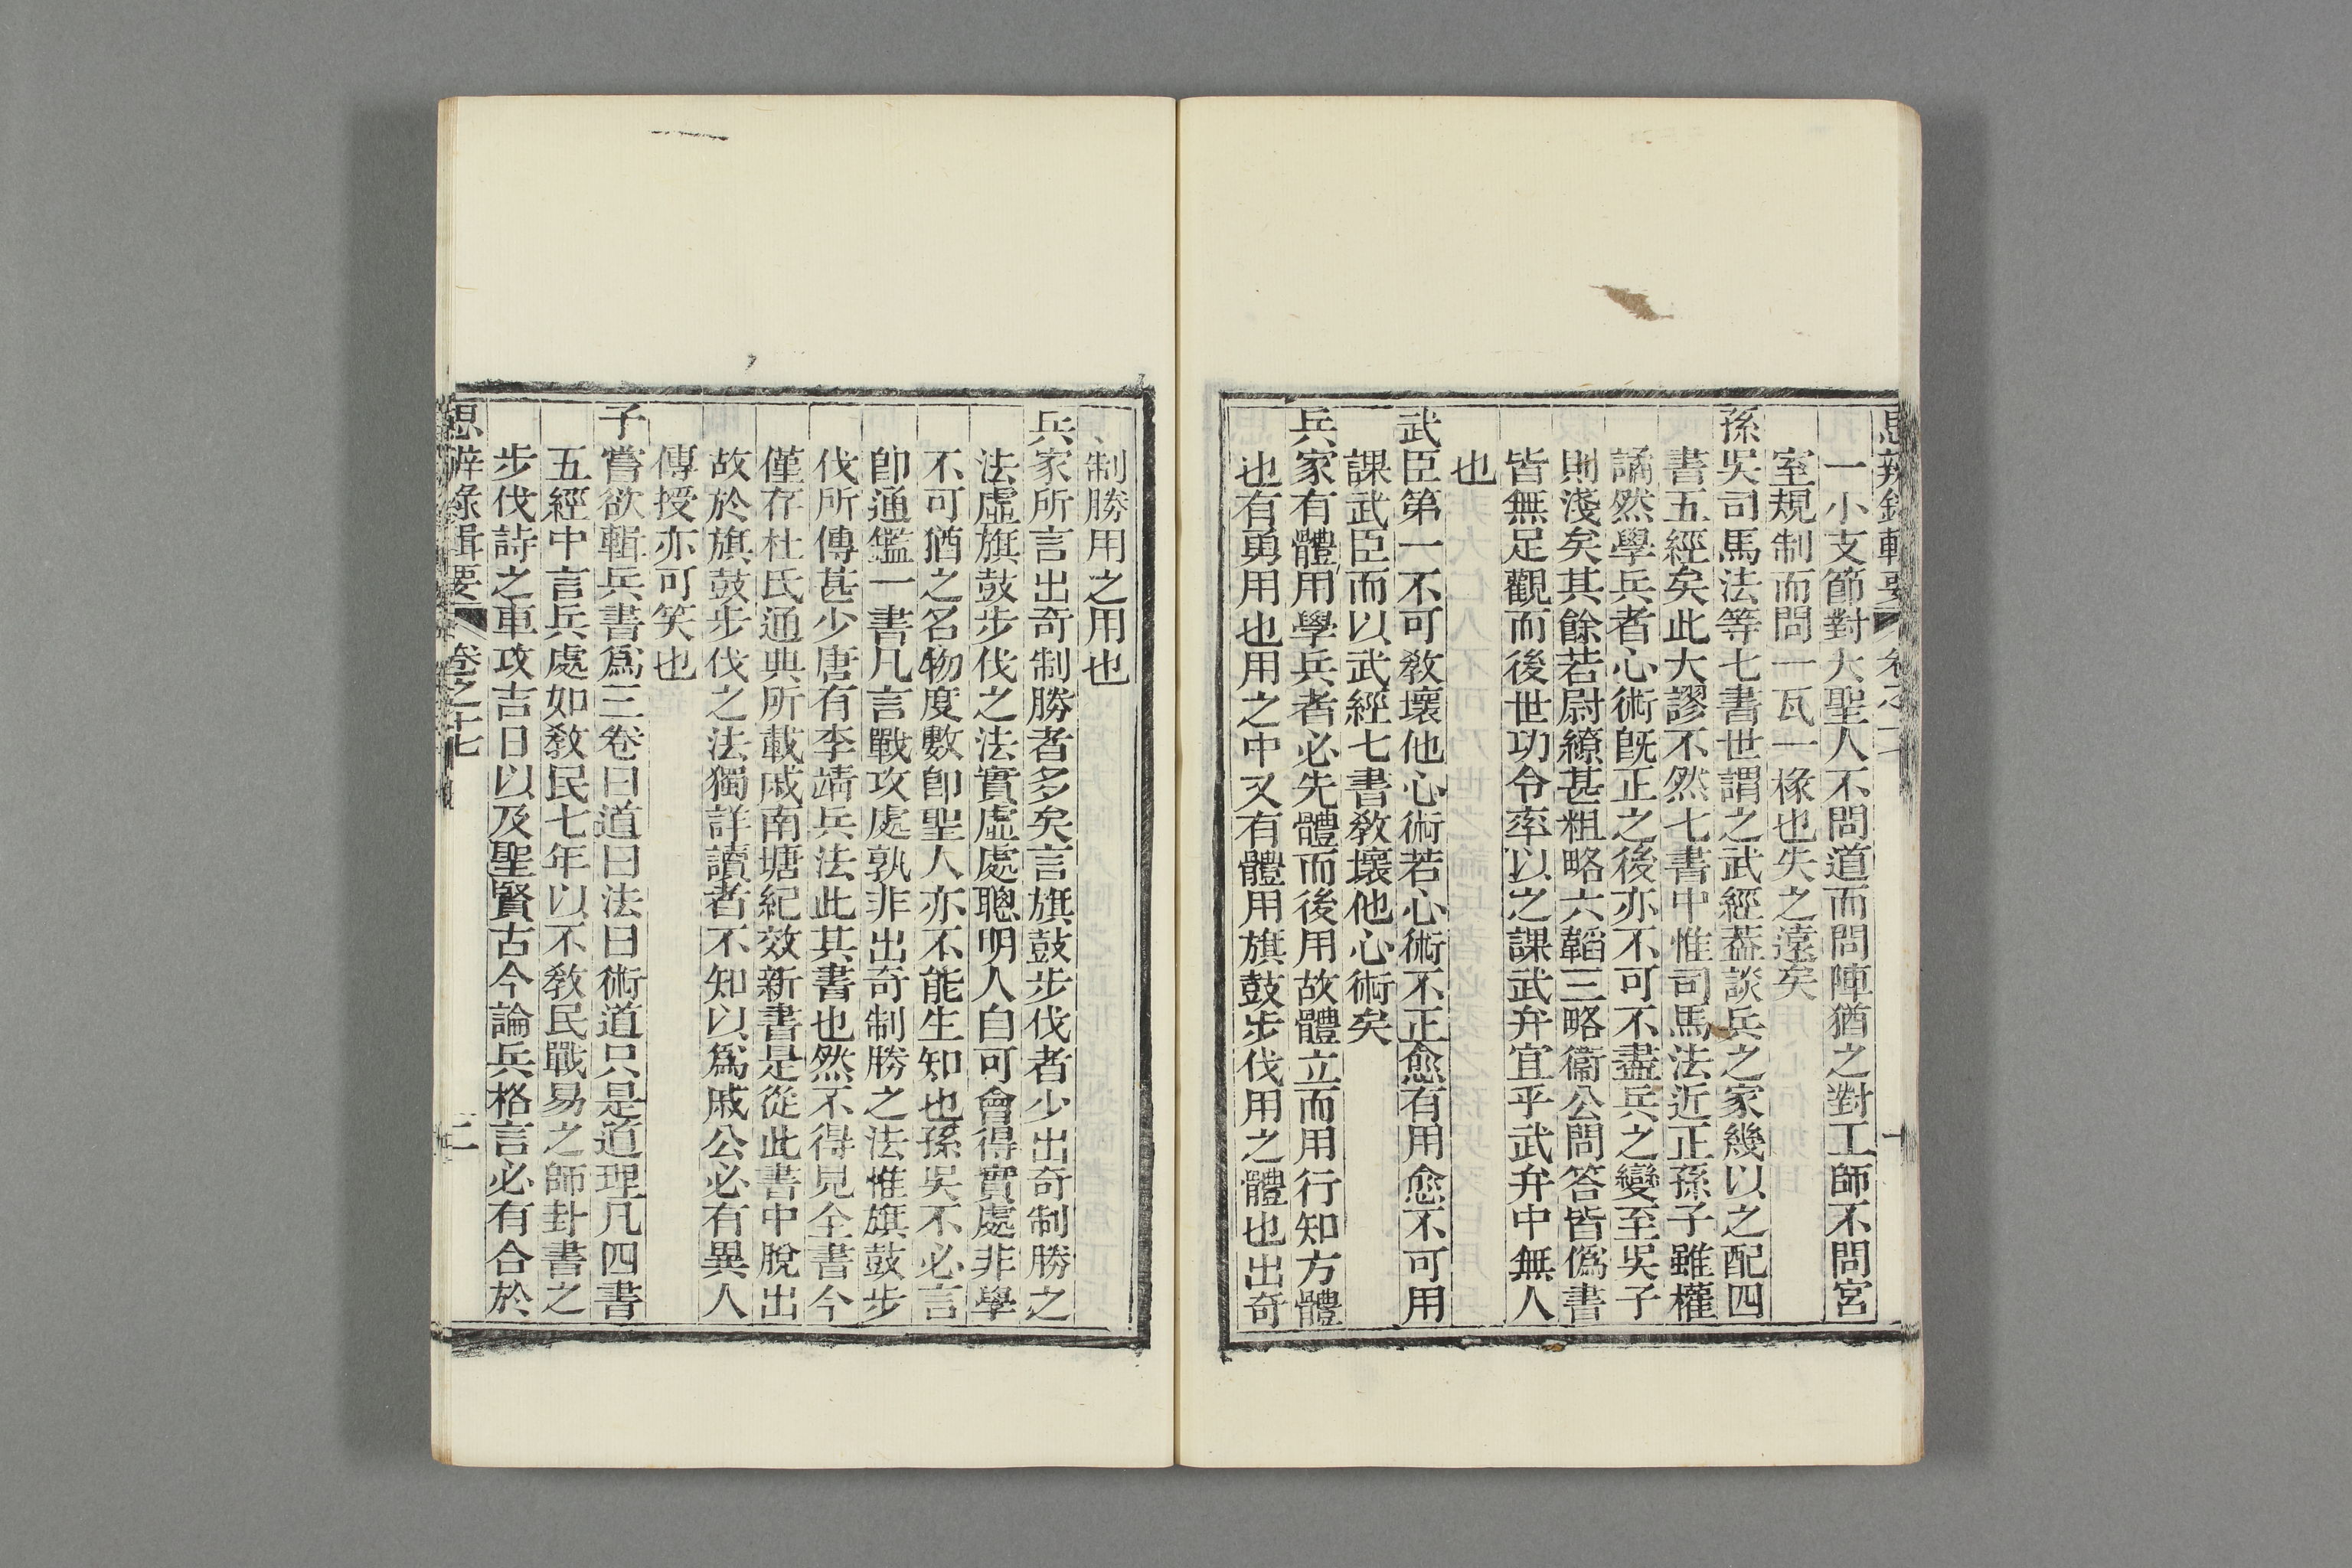 思辨錄輯要 卷之十
一小支節對大聖人不問道而問陣猶之對工師不問宮
室規制而問一瓦一椽也失之遠矣
孫吳司馬法等七書世謂之武經葢談兵之家幾以之配四
書五經矣此大謬不然七書中惟司馬法近正孫子雖權
譎然學兵者心術旣正之後亦不可不盡兵之變至吳子
則淺矣其餘若尉繚甚粗略六韜三略衞公問答皆僞書
皆無足觀而後世功令率以之課武弁宜乎武弁中無人
也
武臣第一不可敎壞他心術若心術不正愈有用愈不可用
課武臣而以武經七書敎壞他心術矣
兵家有體用學兵者必先體而後用故體立而用行知方體
也有勇用也用之中又有體用旗鼓步伐用之體也出奇
制勝用之用也
兵家所言出奇制勝者多矣言旗鼓步伐者少出奇制勝之
法虛旗鼓步伐之法實虛處聰明人自可會得實處非學
不可猶之名物度數卽聖人亦不能生知也孫吳不必言
卽通鑑一書凡言戰攻處孰非出奇制勝之法惟旗鼓步
伐所傳甚少唐有李靖兵法此其書也然不得見全書今
僅存杜氏通典所載戚南塘紀效新書是從此書中脫出
故於旗鼓步伐之法獨詳讀者不知以爲戚公必有異人
傳授亦可笑也
子嘗欲輯兵書爲三卷曰道曰法曰術道只是道理凡四書
五經中言兵處如敎民七年以不敎民戰易之師卦書之
步伐詩之車攻吉日以及聖賢古今論兵格言必有合於
思辨錄輯要 卷之十七 二